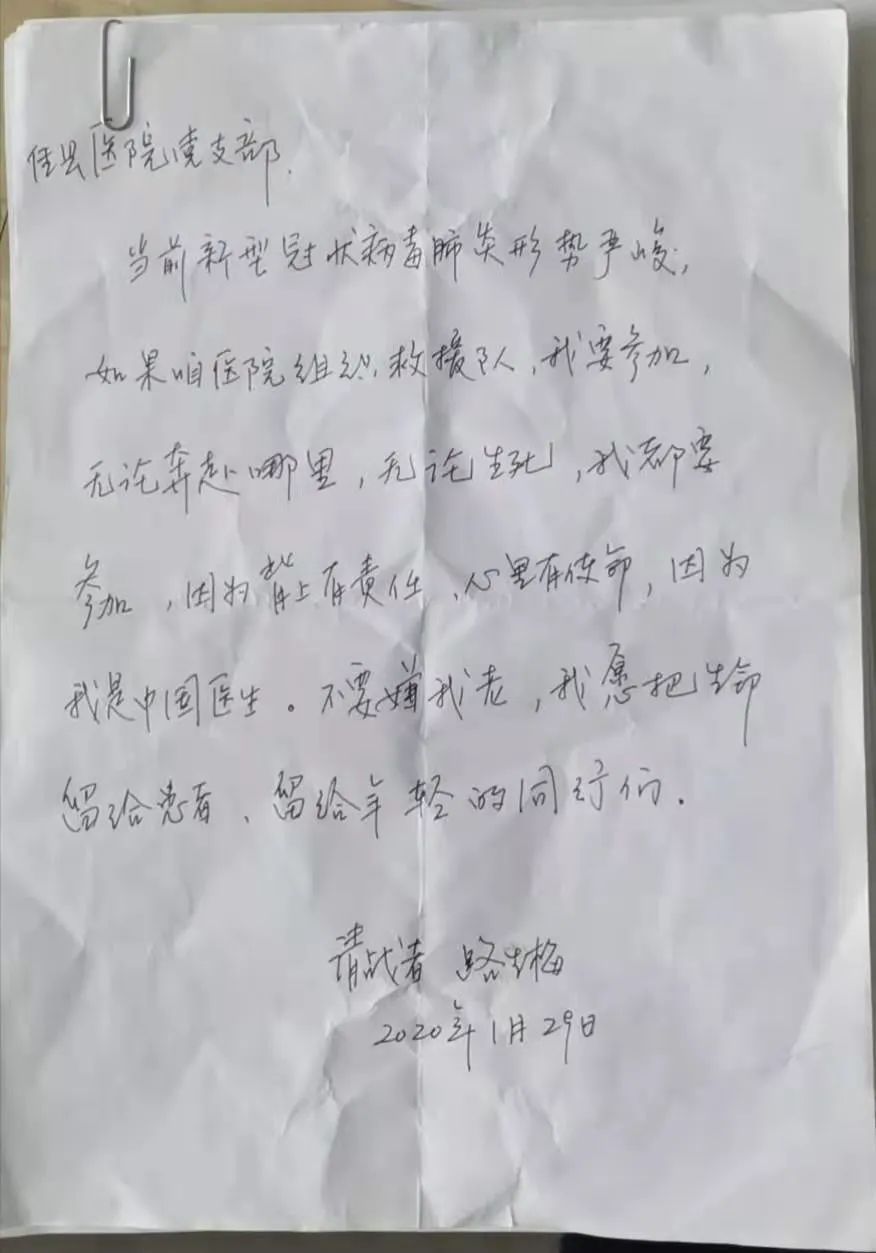 佳县医院党支部.
当前新型冠状病毒肺炎形势严峻,
如果咱医院组织救援队,我要参加,
无论奔赴哪里,无论生死,我都要
参加,因为背上有责任、心里有使命,因为
我是中国医生。不要嫌我老,我愿把生命
留给患者、留给年轻的同行们.
请战者 路生梅
2020年1月29日